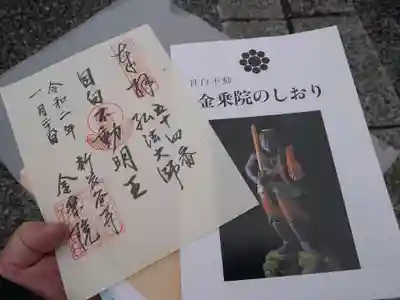 奉拝
五十四番
弘法大師
目白不動明王
新長谷寺
金乗院
令和二年
一月六日
目白不動
金乗院のしおり